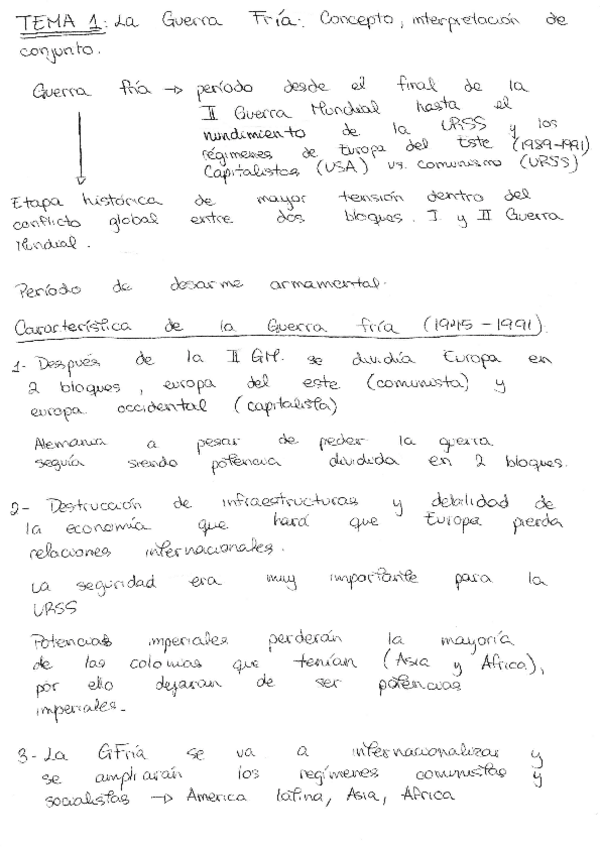 TEMA 1: La Guerra Fría: Concepto, interpretación de
conjunto.
Guerra fría → período desde el final de la
II Guerra Mundial hasta el
nundimiento de la URSS y los
régimenes de Europa del Este (1989-1991)
Capitalistas (USA) vs. comunismo (URSS)
Etapa histórica de mayor tensión dentro del
conflicto global entre dos bloques. I y II Guerra
Mundial.
Período de desarme armamental.
Característica de la Guerra fría (1945-1991).
1- Después de la II GM. se dividía Europa en
2 bloques, europa del este (comunista) y
europa occidental (capitalista)
Alemania a pesar de peder la guerra
seguía siendo potencia dividida en 2 bloques.
2- Destrucción de infraestructuras y debilidad de
la economía que hará que Europa pierda
relaciones internacionales.
La seguridad era muy importante para la
URSS
Potencias imperiales perderán la mayoría
de las colonias que tenían (Asia y Africa),
por ello dejaran de ser potencias
imperiales.
3- La GFría se va a internacionalizar y
se ampliarán los regímenes comunistas y
socialistas → America latina, Asia, Africa